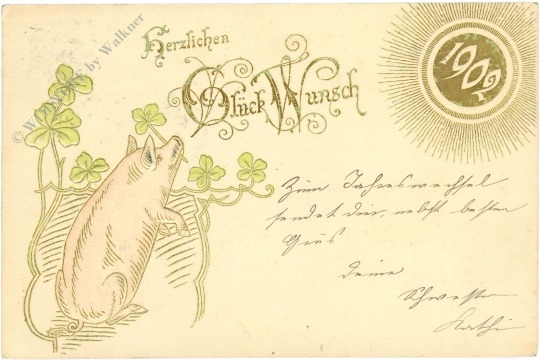 © W. by Walkner
Herzlichen
Glück Wunsch
1902
Zum Jahreswechsel
sendet dir, nebst besten
Grus
deine
Schwester
Kathi